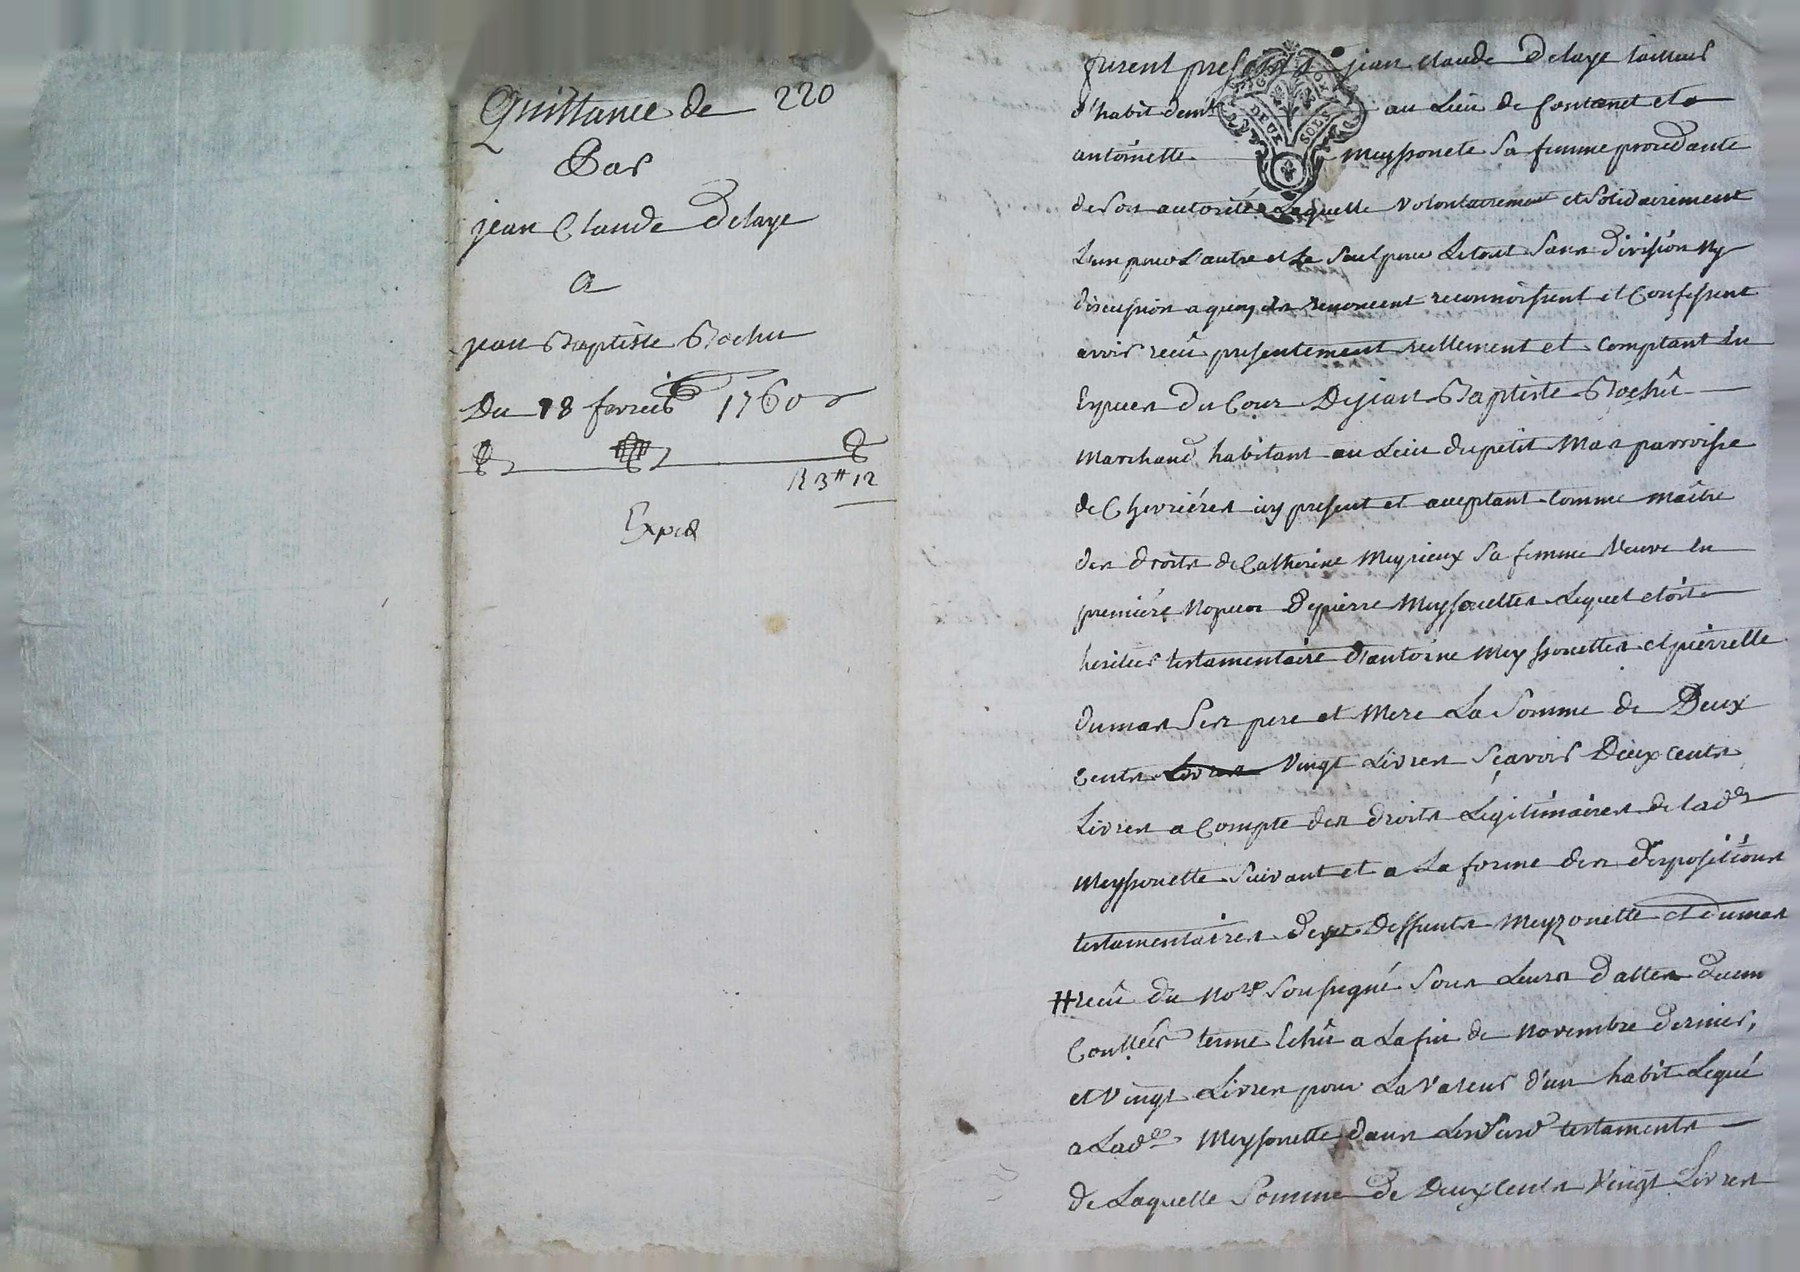 Quittance de 220
Par
jean Claude Delaye
a
jean Baptiste Bochu
Du 18 fevrier 1760
R 3# 12
Exped
furent presents jean claude Delaye tailleur
d'habit demt au Lieu de fontanet et
antoinette Meyssonete sa femme procedante
de son autorité Laquelle volontairement et solidairement
L'un pour L'autre et Le seul pour Le tout sans division ny
discussion a quoy ils renoncent reconnoissent et Confessent
avoir reçû presentement reellement et comptant en
Espuces du Cour De jean Baptiste Bochû
Marchand habitant au Lieu du petit Mas parroisse
de Chevriéres icy present et acceptant comme maître
des droits de Catherine Meyrieux sa femme Veuve en
premiére Nopces De pierre Meysonettes Lequel etoit
heritier testamentaire d'antoine Meyssonettes et pierrette
dumas ses pere et Mere La Somme de Deux
Cents Livres Vingt Livres sçavoir Deux cents
Livres a Compte des droits Legitimaires de lade
Meyssonette suivant et a La forme des dispositions
testamentaires des Deffunts Meyzonette et dumas
reçû du Nore soussigné sous Leurs dattes Duem
Conttées terme Echû a La fin de Novembre dernier,
et Vingt Livres pour La Valeur d'un habit Legué
a Lade Meysonette dans Lesd testaments
de Laquelle Somme de Deux Cents Vingt Livres
DEUX SOLS